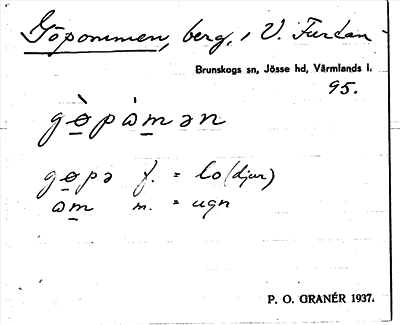 Göpommen, berg, i V. Furtan-
Brunskogs sn, Jösse hd, Värmlands l.
95.
gø̀pòmən
gøpə f. = lo (djur)
òm m. = ugn
P. O. GRANÉR 1937.